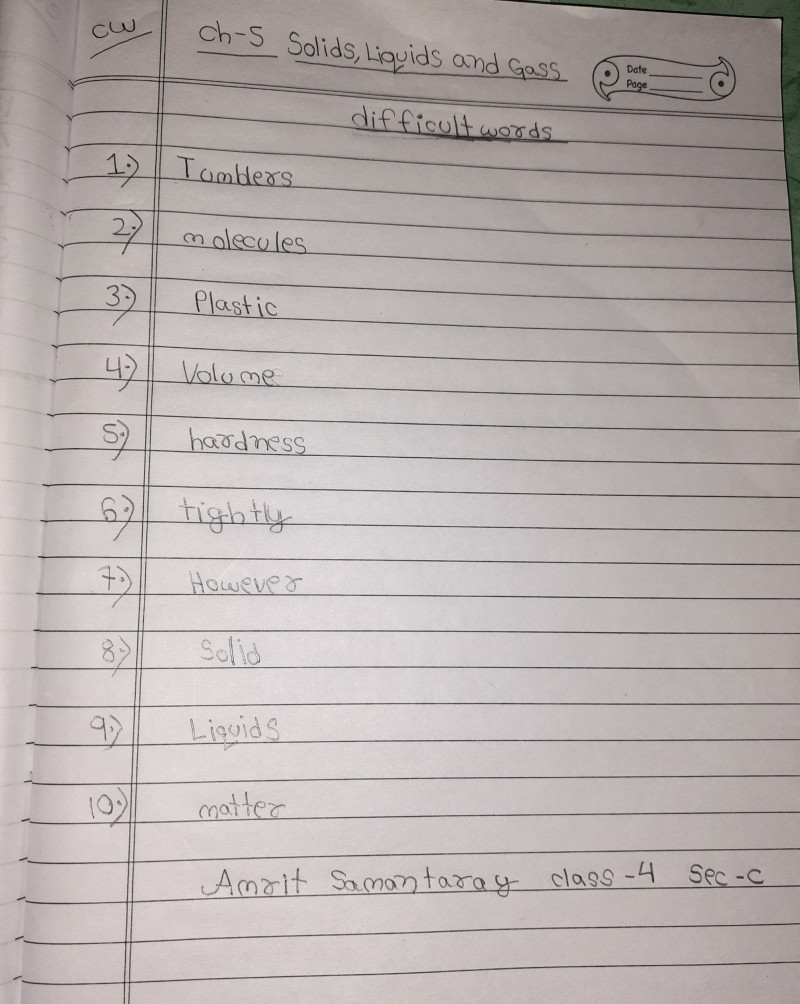 CW
Ch-5 Solids, Liquids and Gass
Date
Page
difficult words
1.) Tumblers
2.) molecules
3.) Plastic
4.) Volume
5.) hardness
6.) tightly
7.) However
8.) Solid
9.) Liquids
10.) matter
Amrit Samantaray class -4 Sec -c